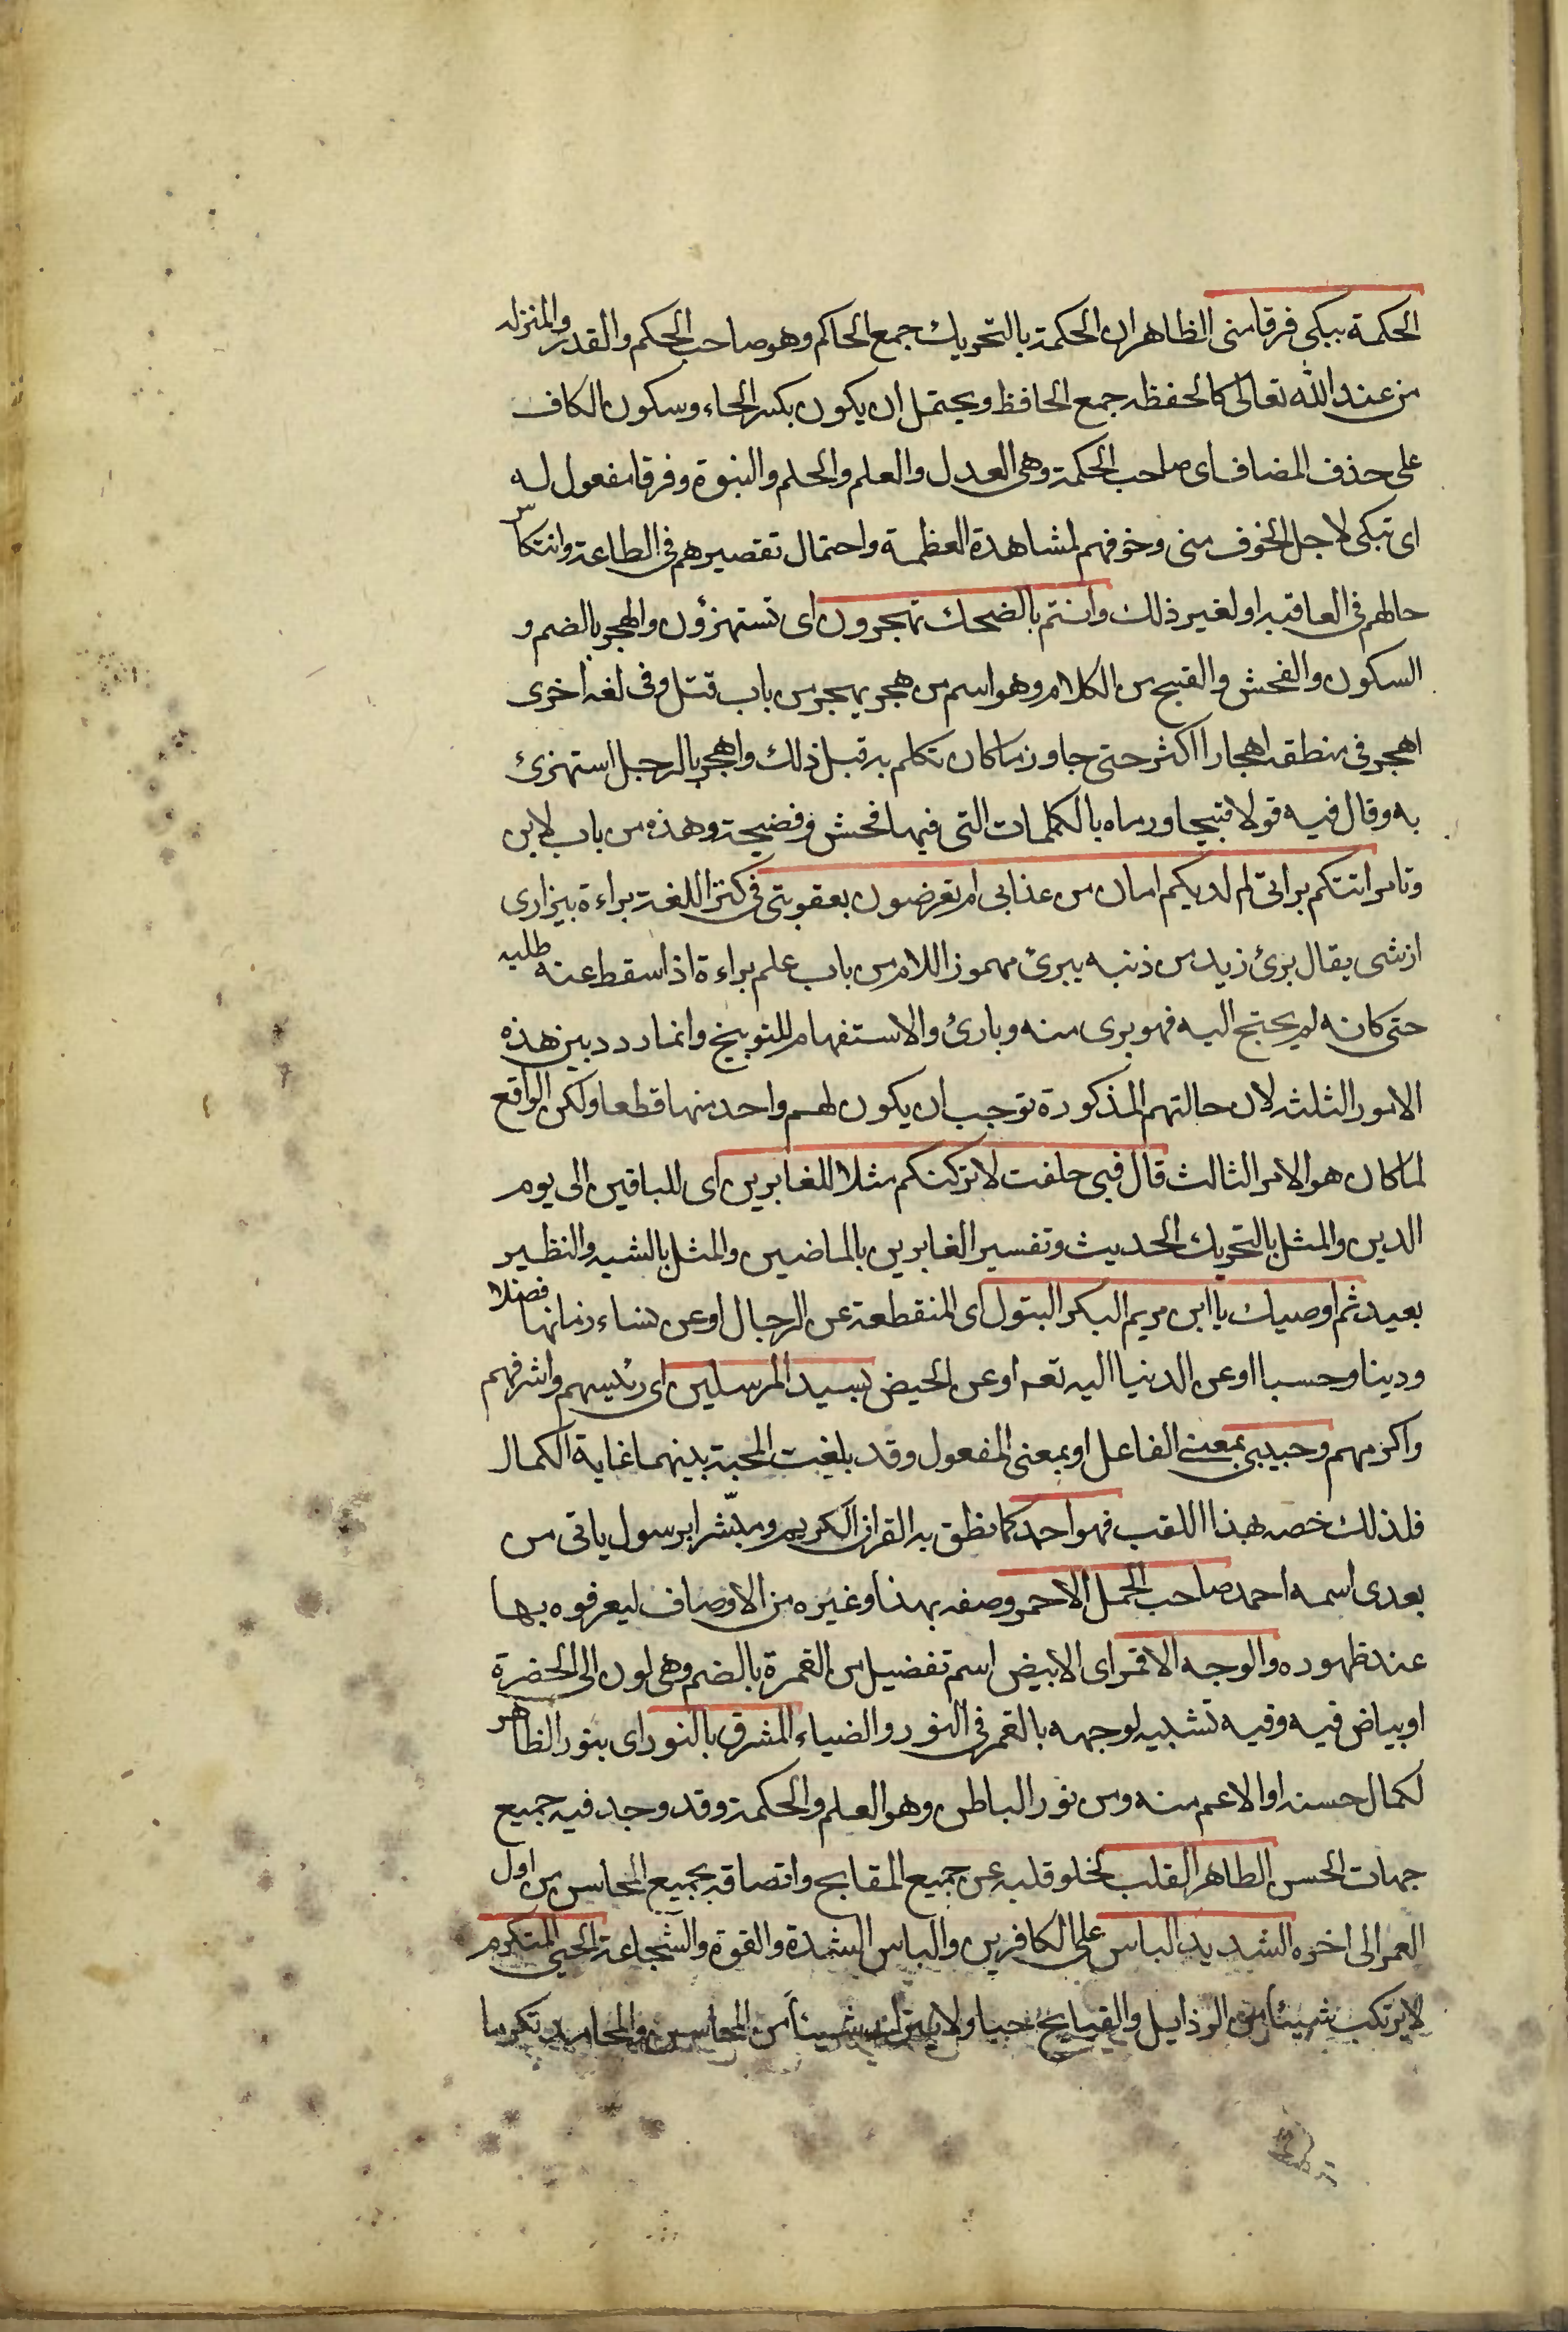 الحكمة يبكى فرقا منى الظاهر ان الحكمة بالتحريك جمع الحاكم وهو صاحب الحكم والقدر والمنزله
من عند الله تعالى كالحفظه جمع الحافظ ويحتمل ان يكون بكسر الحاء وسكون الكاف
على حذف المضاف اى صاحب الحكمة وهى العدل والعلم والحلم والنبوة وفرقا مفعول له
اى تبكى لاجل الخوف منى وخوفهم لمشاهدة العظمة واحتمال تقصيرهم فى الطاعة وانتكاس
حالهم فى العاقبة او لغير ذلك وانتم بالضحك تهجرون اى تستهزؤن والهجر بالضم و
السكون والفحش والقبيح من الكلام وهو اسم من هجر يهجر من باب قتل وفى لغة اخرى
اهجر فى منطقه اهجارا اكثر حتى جاوز ما كان تكلم به قبل ذلك واهجر بالرجل استهزئ
به وقال فيه قولا قبيحا ورماه بالكلمات التى فيها فحش وفضيحة وهذه من باب لابن
وتامر اتتكم برائتى ام لديكم امان من عذابى ام تعرضون بعقوبتى فى كنز اللغة براءة بيزارى
از شى يقال برئ زيد من ذنبه يبرئ مهموز اللام من باب علم براءة اذا سقط عنه طلبه
حتى كانه لم يحتج اليه فهو برى منه وبارئ والاستفهام للتوبيخ وانما ردد بين هذه
الامور الثلثه لان حالتهم المذكورة توجب ان يكون لهم واحد منها قطعا ولكن الواقع
لما كان هو الامر الثالث قال فبى حلفت لاتركنكم مثلا للغابرين اى للباقين الى يوم
الدين والمثل بالتحريك الحديث وتفسير الغابرين بالماضين والمثل بالشبه والنظير
بعيد ثم اوصيك يا ابن مريم البكر البتول اى المنقطعة عن الرجال او عن نساء زمانها فضلا
ودينا وحسبا او عن الدنيا اليه تعه او عن الحيض بسيد المرسلين اى رئيسهم واشرفهم
واكرمهم وحبيبى بمعنى الفاعل او بمعنى المفعول وقد بلغت المحبة بينهما غاية الكمال
فلذلك خصه بهذا اللقب فهو احمد كما نطق به القران الكريم ومبشرا برسول ياتى من
بعدى اسمه احمد صاحب الجمل الاحمر وصفه بهذا وغيره من الاوصاف ليعرفوه بها
عند ظهوره والوجه الاقمر اى الابيض اسم تفضيل من القمرة بالضم وهى لون الى الخضرة
او بياض فيه وفيه تشبيه لوجهه بالقمر فى النور والضياء المشرق بالنور اى بنور الظاهر
لكمال حسنه او الاعم منه ومن نور الباطن وهو العلم والحكمة وقد وجد فيه جميع
جهات الحسن الطاهر القلب لخلو قلبه عن جميع المقابح واتصافه بجميع المحاسن من اول
العمر الى اخره الشديد الباس على الكافرين والباس الشدة والقوة والشجاعة الحيى المتكرم
لا يرتكب شيئا من الرذايل والقبايح حيا ولا يترك شيئا من المحاسن والمحامد تكرما